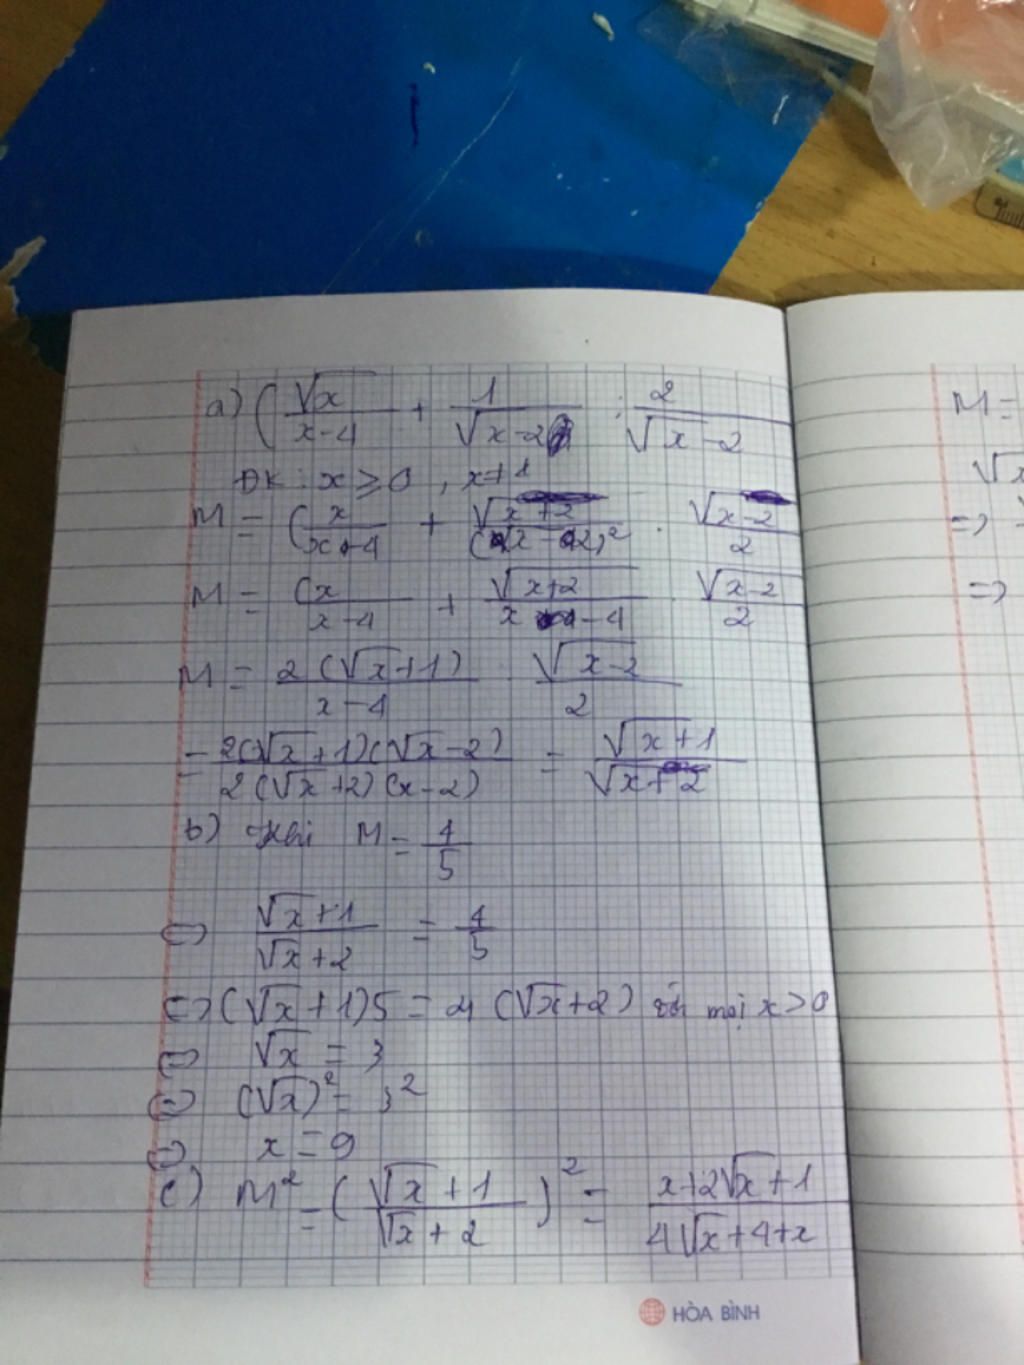 a) ( √x / x-4 + 1 / √x-2 : 2 / √x-2
ĐK : x ≥ 0 , x≠1
M = ( x / x-4 + √x+2 / ( x-2)² . √x-2 / 2
M = (x / x-4 + √x+2 / x-4 . √x-2 / 2
M = 2(√x+1) / x-4 . √x-2 / 2
= 2(√x+1)(√x-2) / 2(√x+2)(x-2) = √x+1 / √x+2
b) Khi M = 4/5
⇔ √x+1 / √x+2 = 4/5
⇔ (√x+1)5 = 4(√x+2) với mọi x>0
⇔ √x = 3
⇔ (√x)² = 3²
⇔ x = 9
c) M² = ( √x+1 / √x+2 )² = x+2√x+1 / 4√x+4+x
HÒA BÌNH
M =
√x
=>
=>